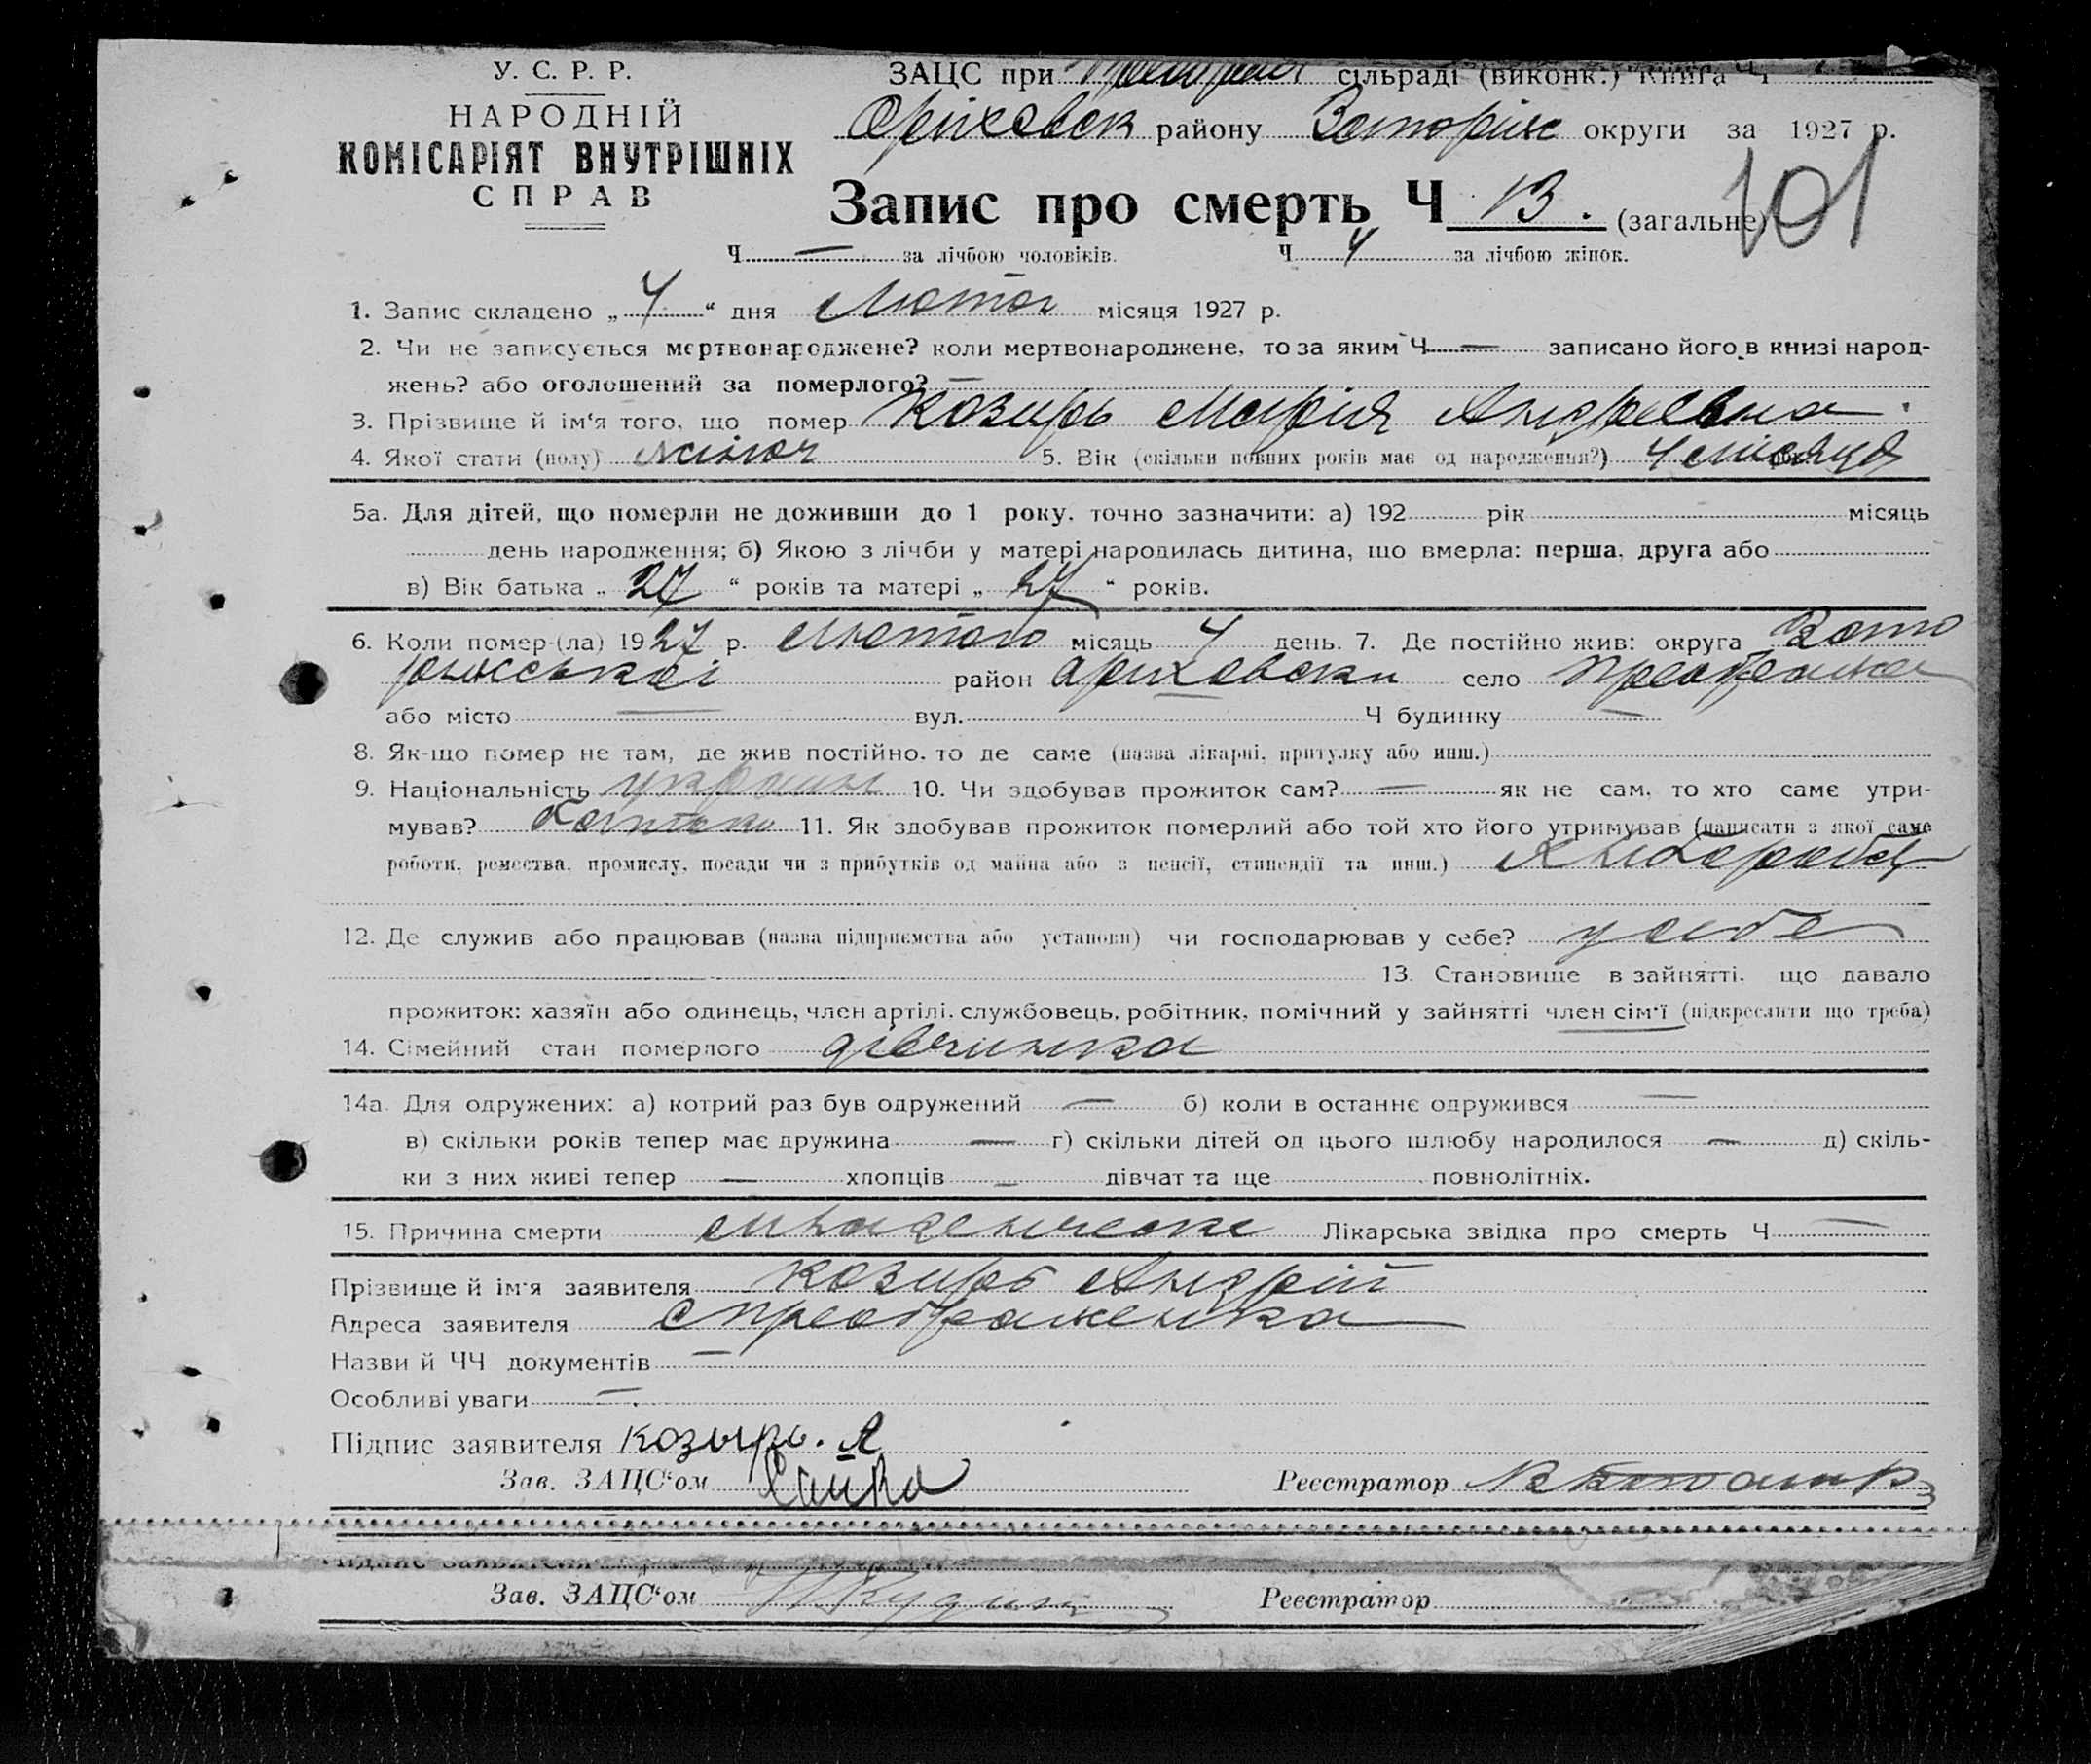 У. С. Р. Р.
НАРОДНІЙ
КОМІСАРІЯТ ВНУТРІШНІХ
СПРАВ
ЗАЦС при сільраді (виконк.) Книга Ч
Оріховск району Запоріж округи за 1927 р.
Запис про смерть Ч 13. (загальне)
101
Ч — за лічбою чоловіків. Ч 4 за лічбою жінок.
1. Запис складено „ 4 “ дня Лютог місяця 1927 р.
2. Чи не записується мертвонароджене? коли мертвонароджене, то за яким Ч — записано його в книзі народ-
жень? або оголошений за померлого? —
3. Прізвище й ім‘я того, що помер Козирь Марія Андреевна
4. Якої стати (полу) жіноч 5. Вік (скільки повних років має од народження?) 4 місяця
5а. Для дітей, що померли не доживши до 1 року, точно зазначити: а) 192 рік місяць
день народження; б) Якою з лічби у матері народилась дитина, що вмерла: перша, друга або
в) Вік батька „ 27 “ років та матері „ 27 “ років.
6. Коли помер-(ла) 1927 р. Лютого місяць 4 день. 7. Де постійно жив: округа Запо
ріжської район Оріховски село Преображенка
або місто — вул. Ч будинку —
8. Як-що помер не там, де жив постійно, то де саме (назва лікарні, притулку або инш.)
9. Національність украин 10. Чи здобував прожиток сам? — як не сам, то хто саме утри-
мував? батько 11. Як здобував прожиток померлий або той хто його утримував (написати з якої саме
роботи, ремества, промислу, посади чи з прибутків од майна або з пенсії, стипендії та инш.) хлібороб
12. Де служив або працював (назва підприємства або установи) чи господарював у себе? у себе
13. Становище в зайнятті, що давало
прожиток: хазяїн або одинець, член артілі, службовець, робітник, помічний у зайнятті член сім‘ї (підкреслити що треба)
14. Сімейний стан померлого дівчинка
14а. Для одружених: а) котрий раз був одружений — б) коли в останнє одружився —
в) скільки років тепер має дружина — г) скільки дітей од цього шлюбу народилося — д) скіль-
ки з них живі тепер — хлопців — дівчат та ще повнолітніх.
15. Причина смерти младенческе Лікарська звідка про смерть Ч —
Прізвище й ім‘я заявителя Козирь Андрій
Адреса заявителя с преображенка
Назви й ЧЧ документів —
Особливі уваги —.
Підпис заявителя козырь. А
Зав. ЗАЦС‘ом Реєстратор
Підпис заявителя
Зав. ЗАЦС‘ом Реєстратор